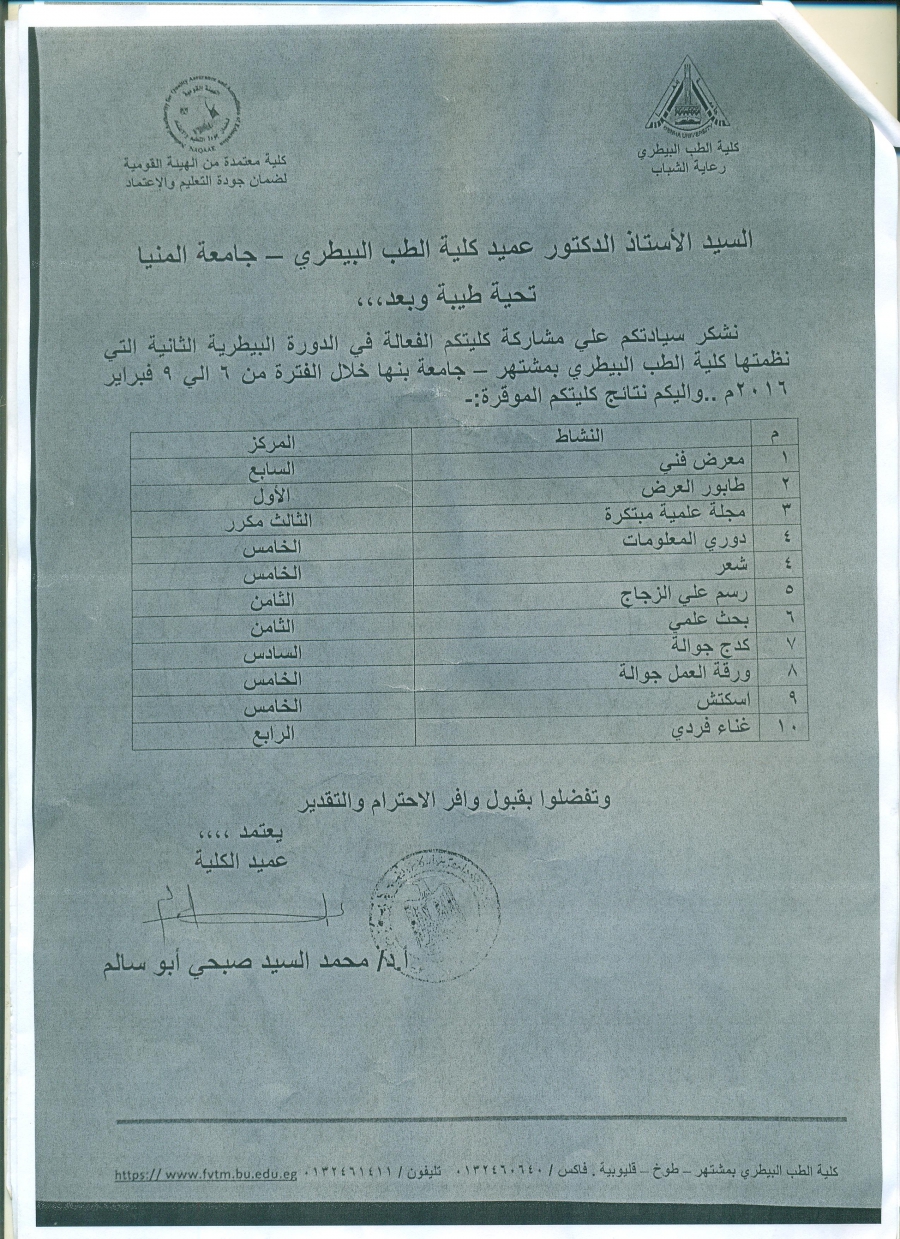 BENHA UNIVERSITY
كلية الطب البيطري
رعاية الشباب
NAQAAE
كلية معتمدة من الهيئة القومية
لضمان جودة التعليم والإعتماد
السيد الأستاذ الدكتور عميد كلية الطب البيطري – جامعة المنيا
تحية طيبة وبعد،،،
نشكر سيادتكم علي مشاركة كليتكم الفعالة في الدورة البيطرية الثانية التي
نظمتها كلية الطب البيطري بمشتهر – جامعة بنها خلال الفترة من ٦ الي ٩ فبراير
٢٠١٦م ..واليكم نتائج كليتكم الموقرة:-
م النشاط المركز
١ معرض فني السابع
٢ طابور العرض الأول
٣ مجلة علمية مبتكرة الثالث مكرر
٤ دوري المعلومات الخامس
٤ شعر الخامس
٥ رسم علي الزجاج الثامن
٦ بحث علمي الثامن
٧ كدج جوالة السادس
٨ ورقة العمل جوالة الخامس
٩ اسكتش الخامس
١٠ غناء فردي الرابع
وتفضلوا بقبول وافر الاحترام والتقدير
يعتمد ،،،،
عميد الكلية
أ.د/ محمد السيد صبحي أبو سالم
كلية الطب البيطري بمشتهر – طوخ – قليوبية . فاكس / ٠١٣٢٤٦٠٦٤٠ تليفون / ٠١٣٢٤٦١٤١١ https:// www.fvtm.bu.edu.eg